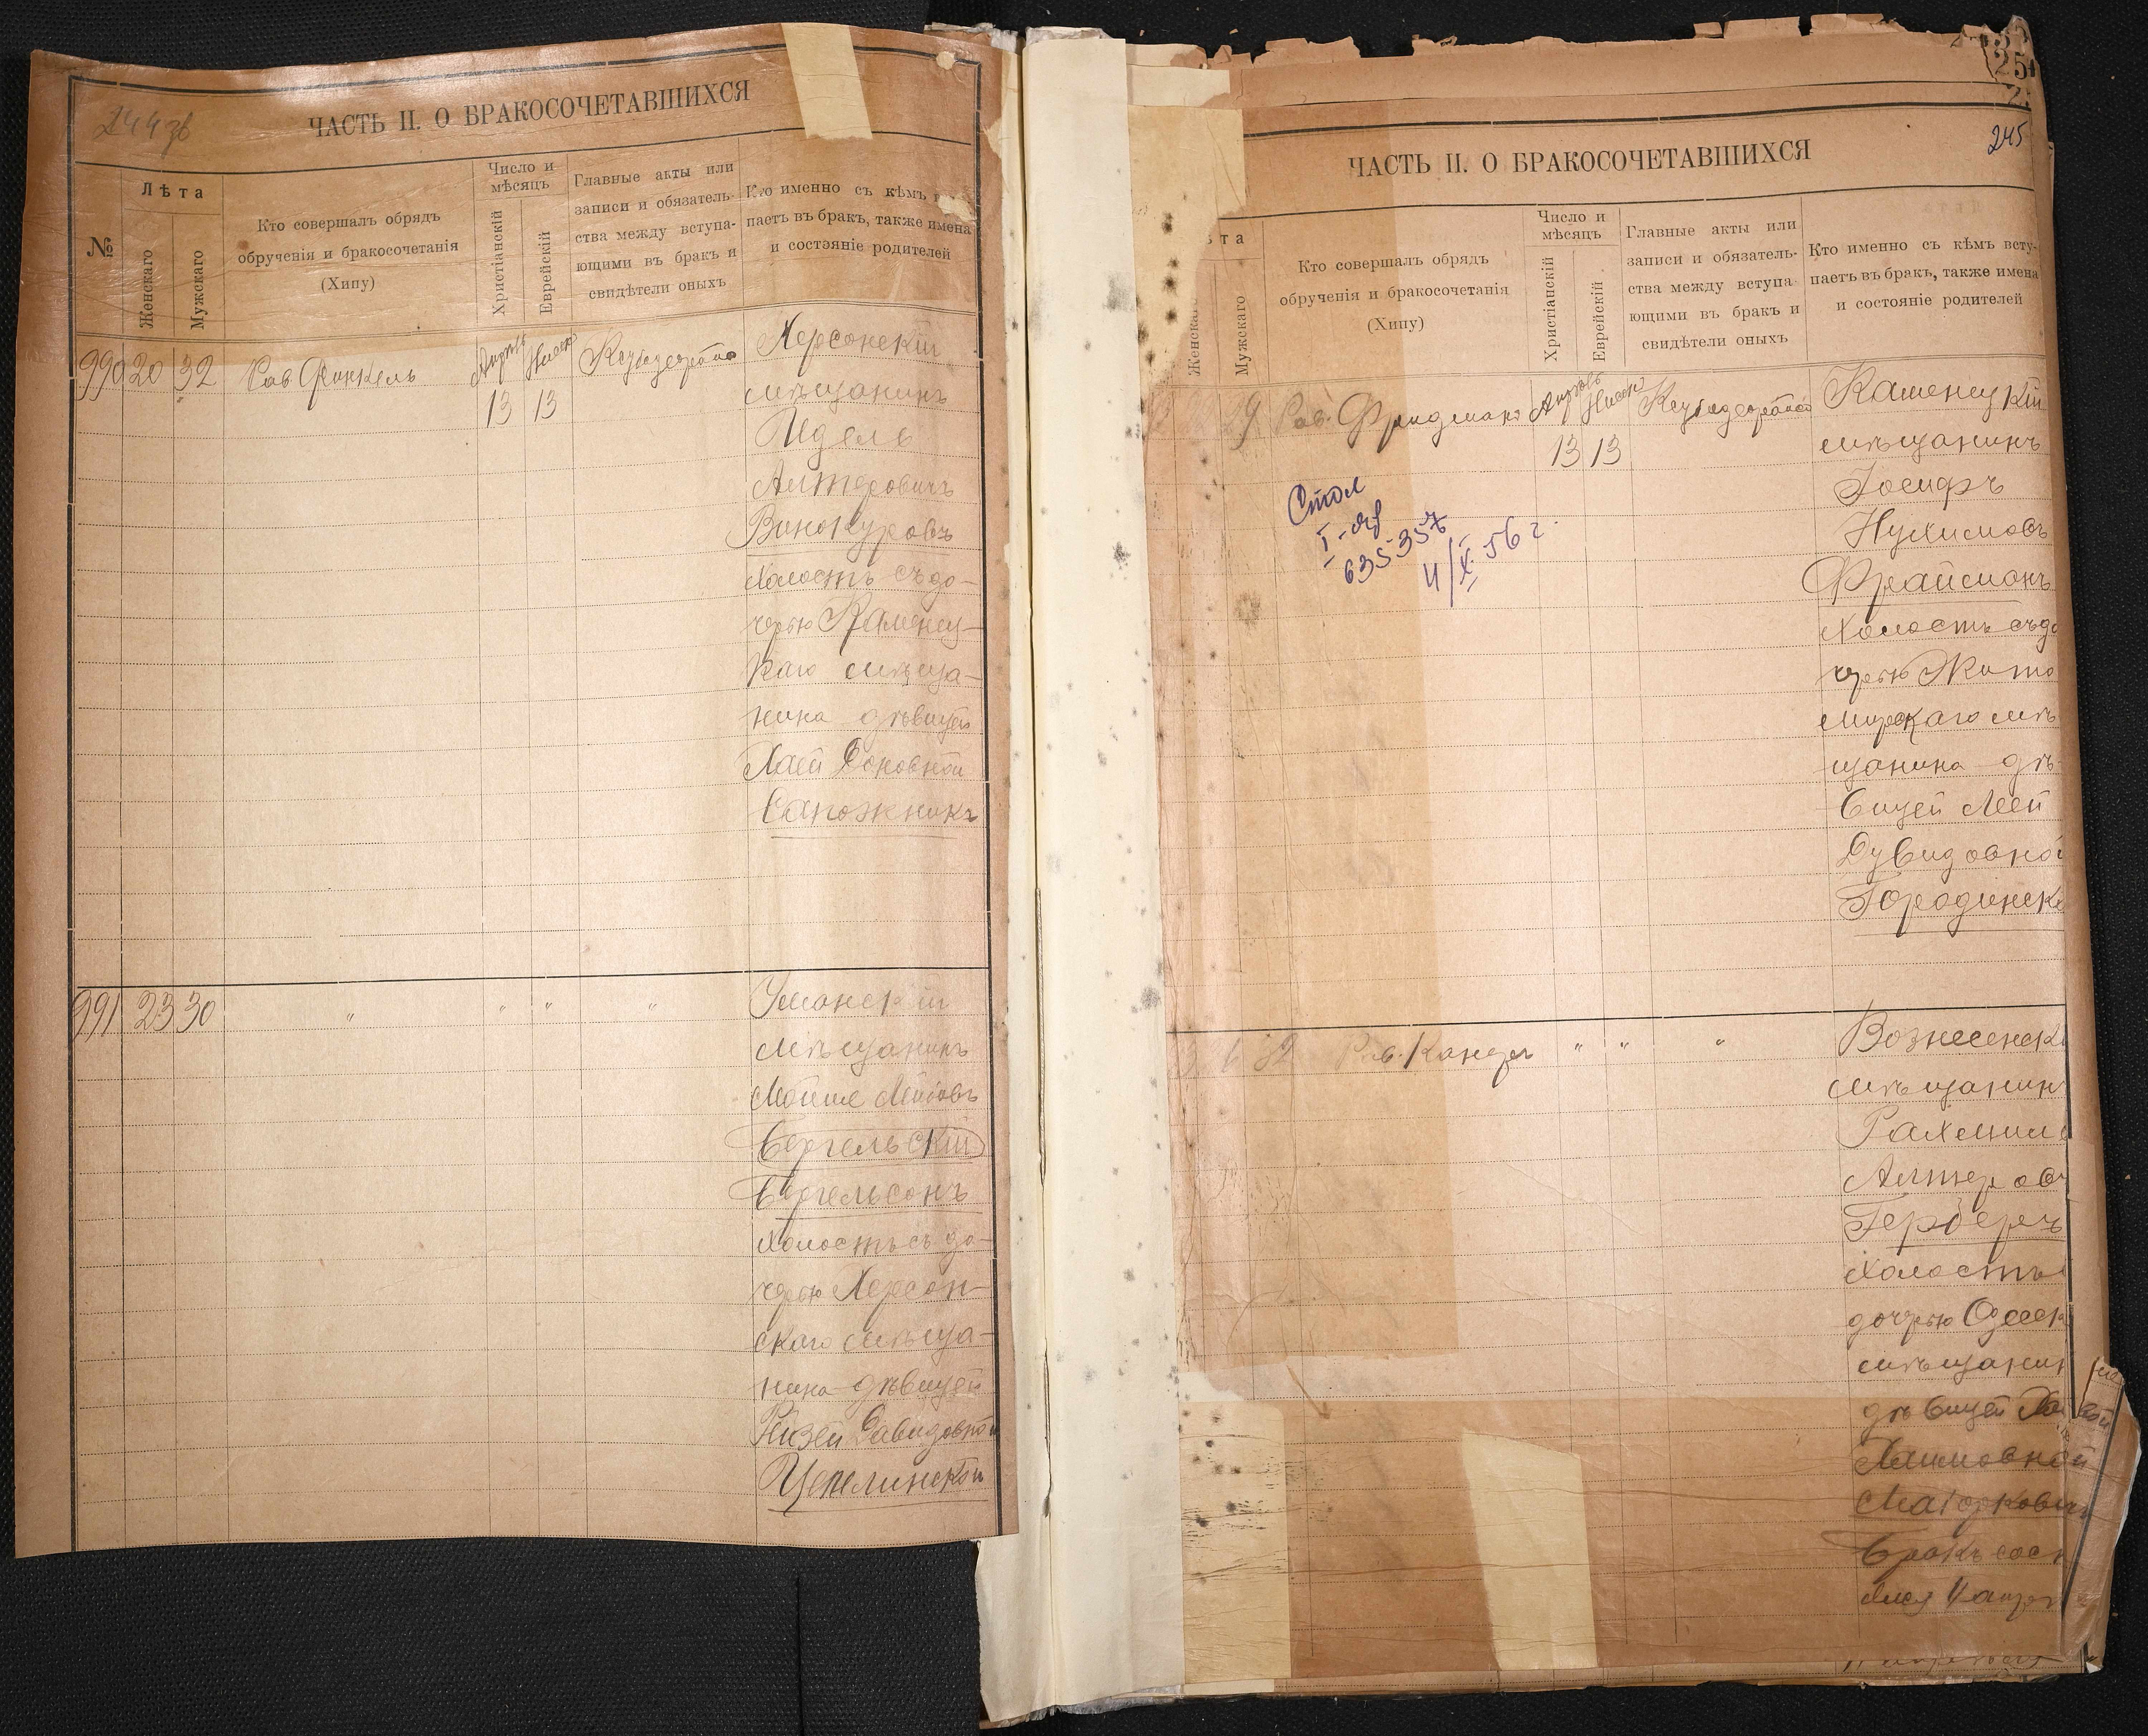 244 об
ЧАСТЬ II. О БРАКОСОЧЕТАВШИХСЯ
№
Лѣта
Женскаго
Мужскаго
Кто совершалъ обрядъ
обрученія и бракосочетанія
(Хипу)
Число и
мѣсяцъ
Христіанскій
Еврейскій
Главные акты или
записи и обязатель-
ства между вступа-
ющими въ бракъ и
свидѣтели оныхъ
Кто именно съ кѣмъ
паетъ въ бракъ, также имена
и состояніе родителей
990 20 32 Рав Финкель
13 13
Херсонскій
мѣщанинъ
Идель
Алтеровичъ
Винокуровъ
холостъ съ до-
черью Каменец-
каго мѣща-
нина дѣвицей
Хаей
Сапожникъ
991 23 30 " " " "
Уманскій
мѣщанинъ
Бергельскій
Бергельсонъ
холостъ съ до-
черью Херсон-
скаго мѣща-
нина дѣвицей
Рейзей Давидовной
Цепелинской
245
ЧАСТЬ II. О БРАКОСОЧЕТАВШИХСЯ
та
Женска
Мужскаго
Кто совершалъ обрядъ
обрученія и бракосочетанія
(Хипу)
Число и
мѣсяцъ
Христіанскій
Еврейскій
Главные акты или
записи и обязатель-
ства между вступа
ющими въ бракъ и
свидѣтели оныхъ
Кто именно съ кѣмъ всту-
паетъ въ бракъ, также имена
и состояніе родителей
29 Рав. Фридманъ
13 13
635357
XI 56 г.
Каменецкій
мѣщанинъ
Іосифъ
Нухимовъ
Фрайманъ
холостъ съ до
черью Жито
мирскаго мѣ
щанина дѣ-
вицей Леей
Дувидовной
Городинск
Рав. Канцеръ " " "
Вознесенск
мѣщанин
Рахмил
Алтеров
Герберъ
холостъ
дочерью Одесск
мѣщанин
дѣвицей
Хаимовной
Маіорковичъ
Бракъ сост